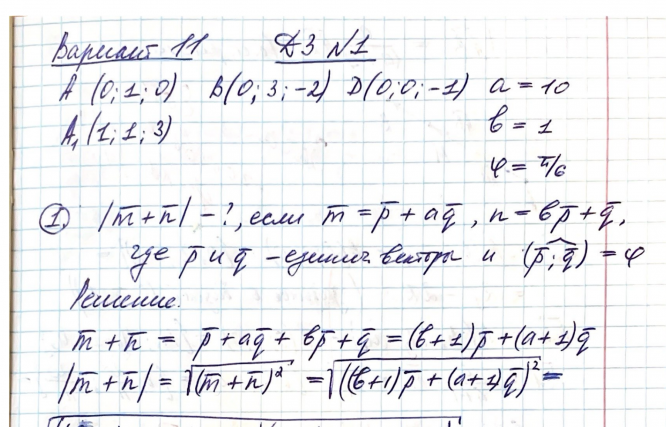 Вариант 11 ДЗ №1
A (0; 1; 0) B(0; 3; -2) D(0; 0; -1) a = 10
A₁ (1; 1; 3) b = 1
φ = π/6
1. |m̅+n̅| - ?, если m̅ = p̅ + aq̅, n = bp̅ + q̅,
где p̅ и q̅ - единич. векторы и (p̅; q̅) = φ
Решение:
m̅ + n̅ = p̅ + aq̅ + bp̅ + q̅ = (b+1)p̅ + (a+1)q̅
|m̅ + n̅| = √(m̅+n̅)² = √((b+1)p̅ + (a+1)q̅)² =